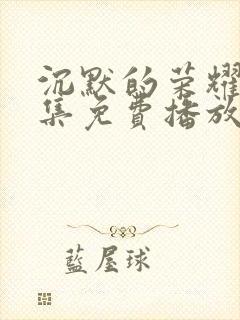 沉默的荣耀
集免費播放
藍屋球